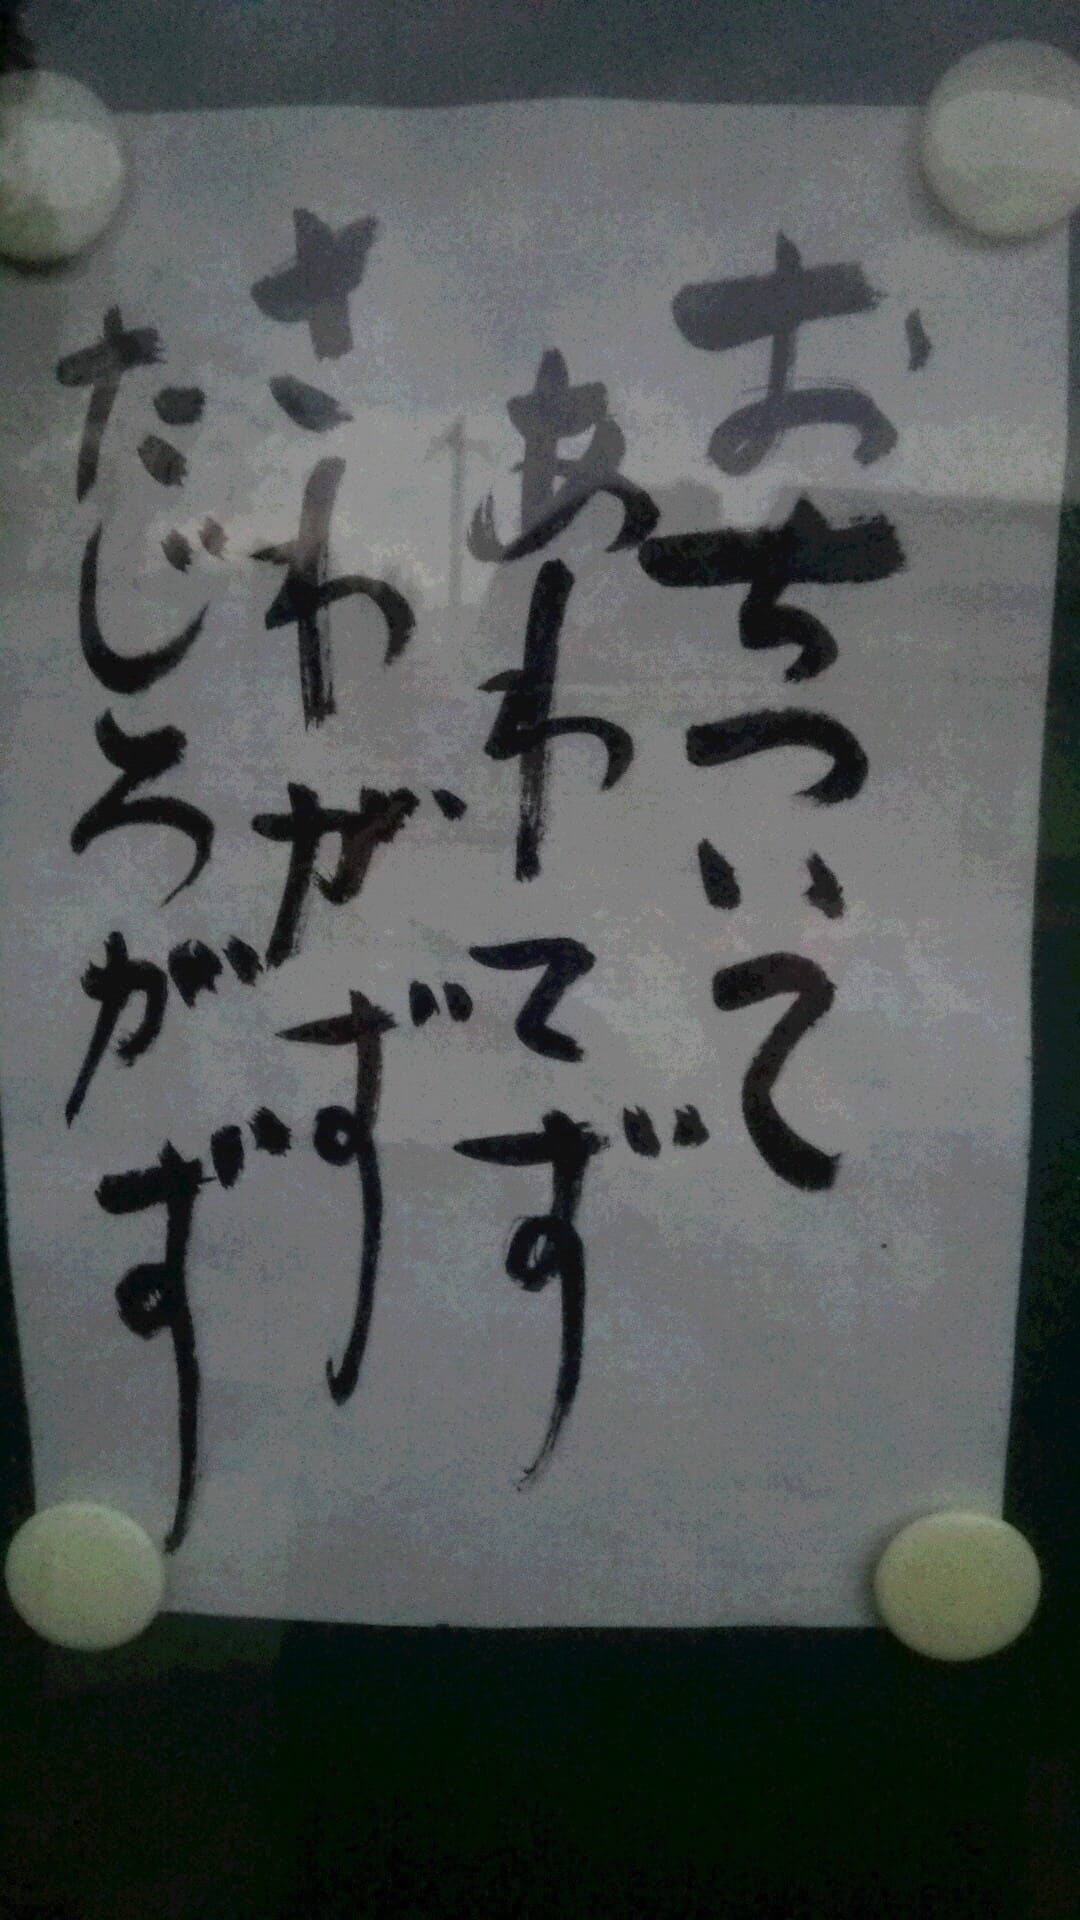 おちついて
あわてず
さわがず
たじろがず